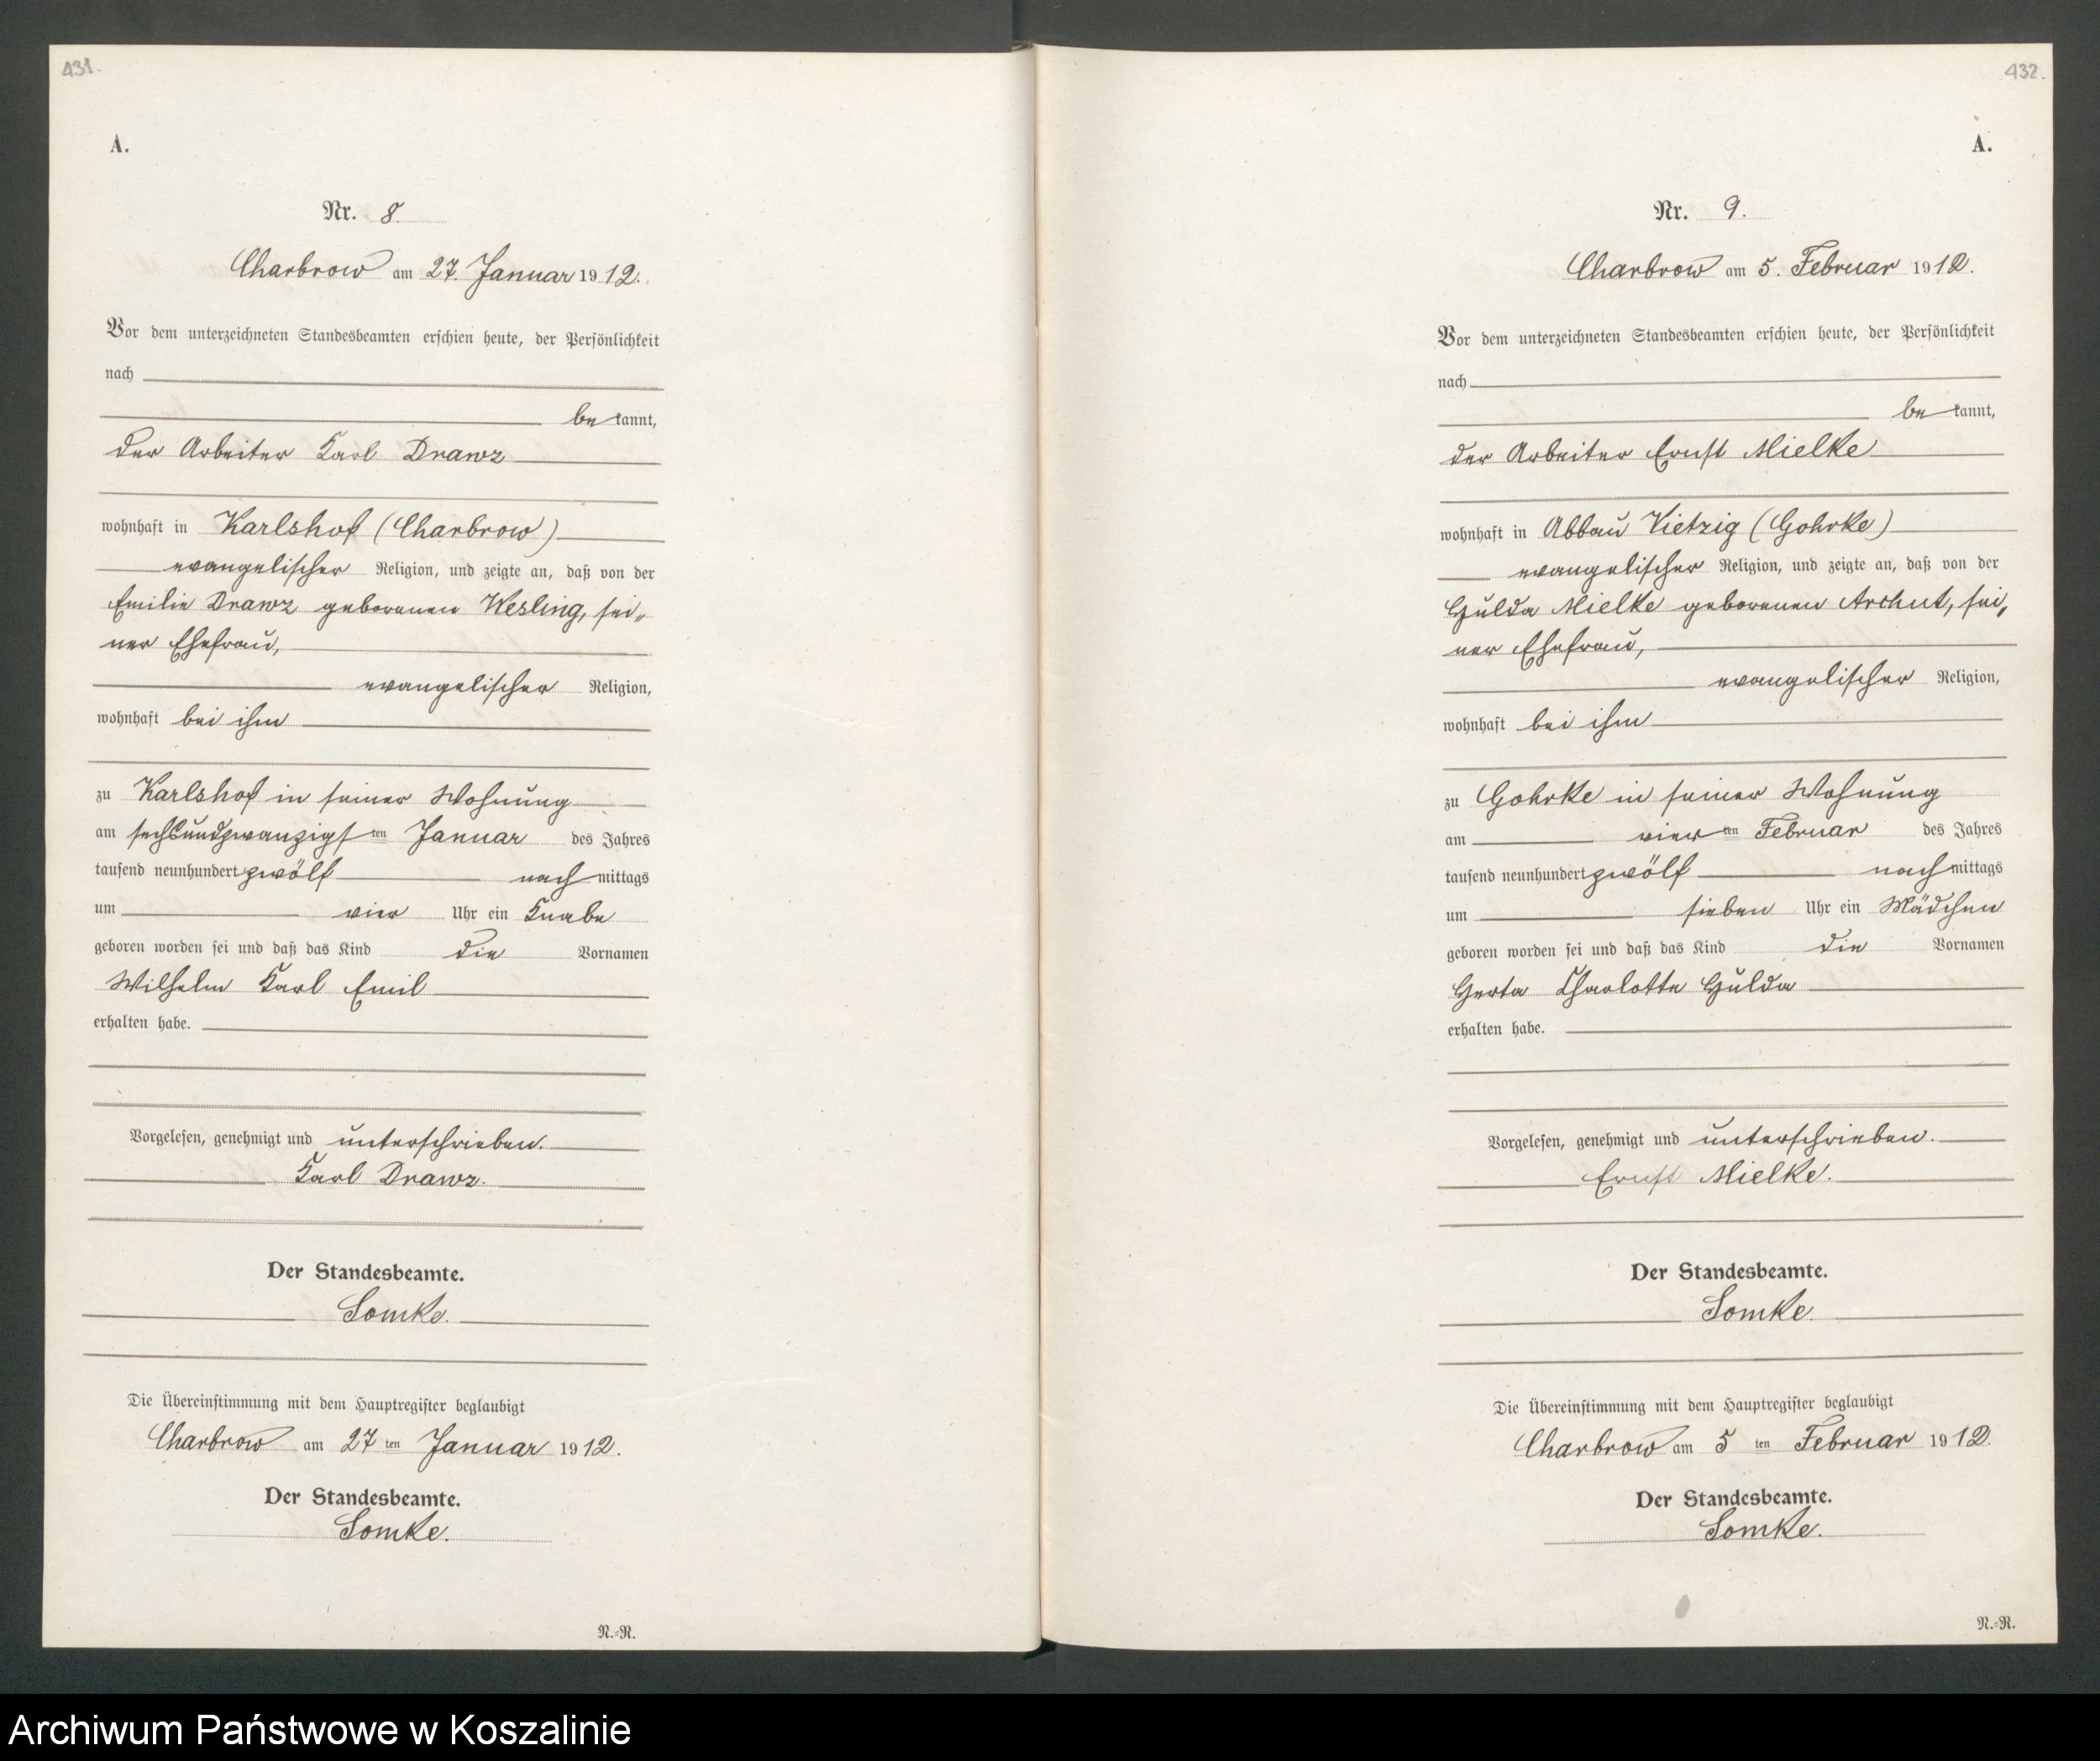 431.
A.
Nr. 8.
Charbrow am 27. Januar 1912.
Vor dem unterzeichneten Standesbeamten erschien heute, der Persönlichkeit
nach
be kannt,
der Arbeiter Karl Drawz
wohnhaft in Karlshof (Charbrow)
evangelischer Religion, und zeigte an, daß von der
Emilie Drawz geborenen Wesling, sei„
ner Ehefrau,
evangelischer Religion,
wohnhaft bei ihm
zu Karlshof in seiner Wohnung
am sechsundzwanzigsten Januar des Jahres
tausend neunhundert zwölf nach mittags
um vier Uhr ein Knabe
geboren worden sei und daß das Kind die Vornamen
Wilhelm Karl Emil
erhalten habe.
Vorgelesen, genehmigt und unterschrieben.
Karl Drawz.
Der Standesbeamte.
Somke.
Die Übereinstimmung mit dem Hauptregister beglaubigt
Charbrow am 27 ten Januar 1912.
Der Standesbeamte.
Somke.
N.=R.
432.
A.
Nr. 9.
Charbrow am 5. Februar 1912.
Vor dem unterzeichneten Standesbeamten erschien heute, der Persönlichkeit
nach
be kannt,
der Arbeiter Ernst Mielke
wohnhaft in Abbau Vietzig (Gohrke)
evangelischer Religion, und zeigte an, daß von der
Hulda Mielke geborenen Archut, sei„
ner Ehefrau,
evangelischer Religion,
wohnhaft bei ihm
zu Gohrke in seiner Wohnung
am vier ten Februar des Jahres
tausend neunhundert zwölf nach mittags
um sieben Uhr ein Mädchen
geboren worden sei und daß das Kind die Vornamen
Herta Charlotte Hulda
erhalten habe.
Vorgelesen, genehmigt und unterschrieben.
Ernst Mielke.
Der Standesbeamte.
Somke.
Die Übereinstimmung mit dem Hauptregister beglaubigt
Charbrow am 5 ten Februar 1912.
Der Standesbeamte.
Somke.
N.=R.
Archiwum Państwowe w Koszalinie